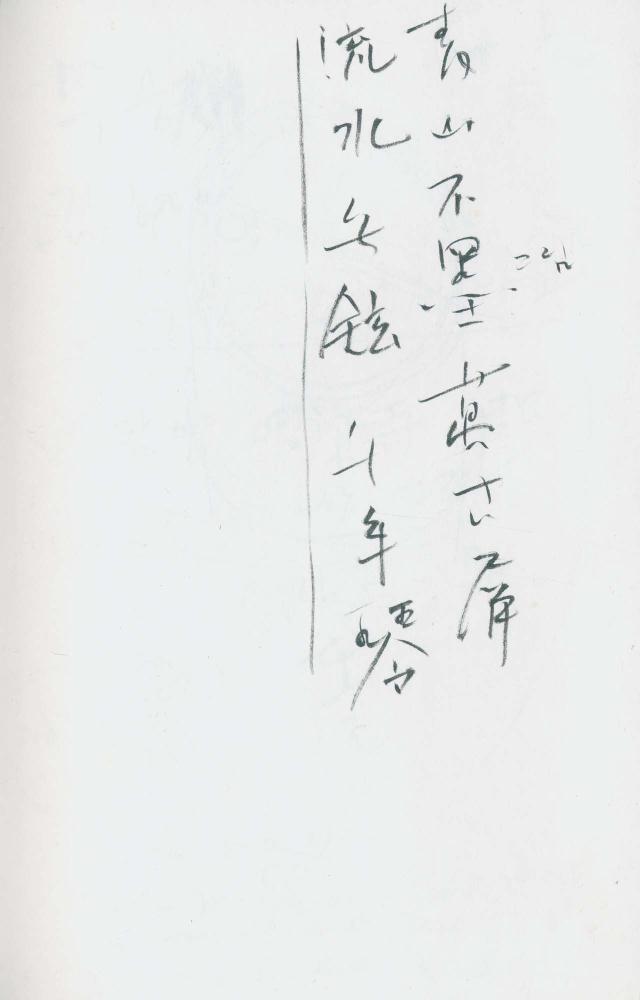 青山不墨萬古屛
그림
流水無鉉千年琴